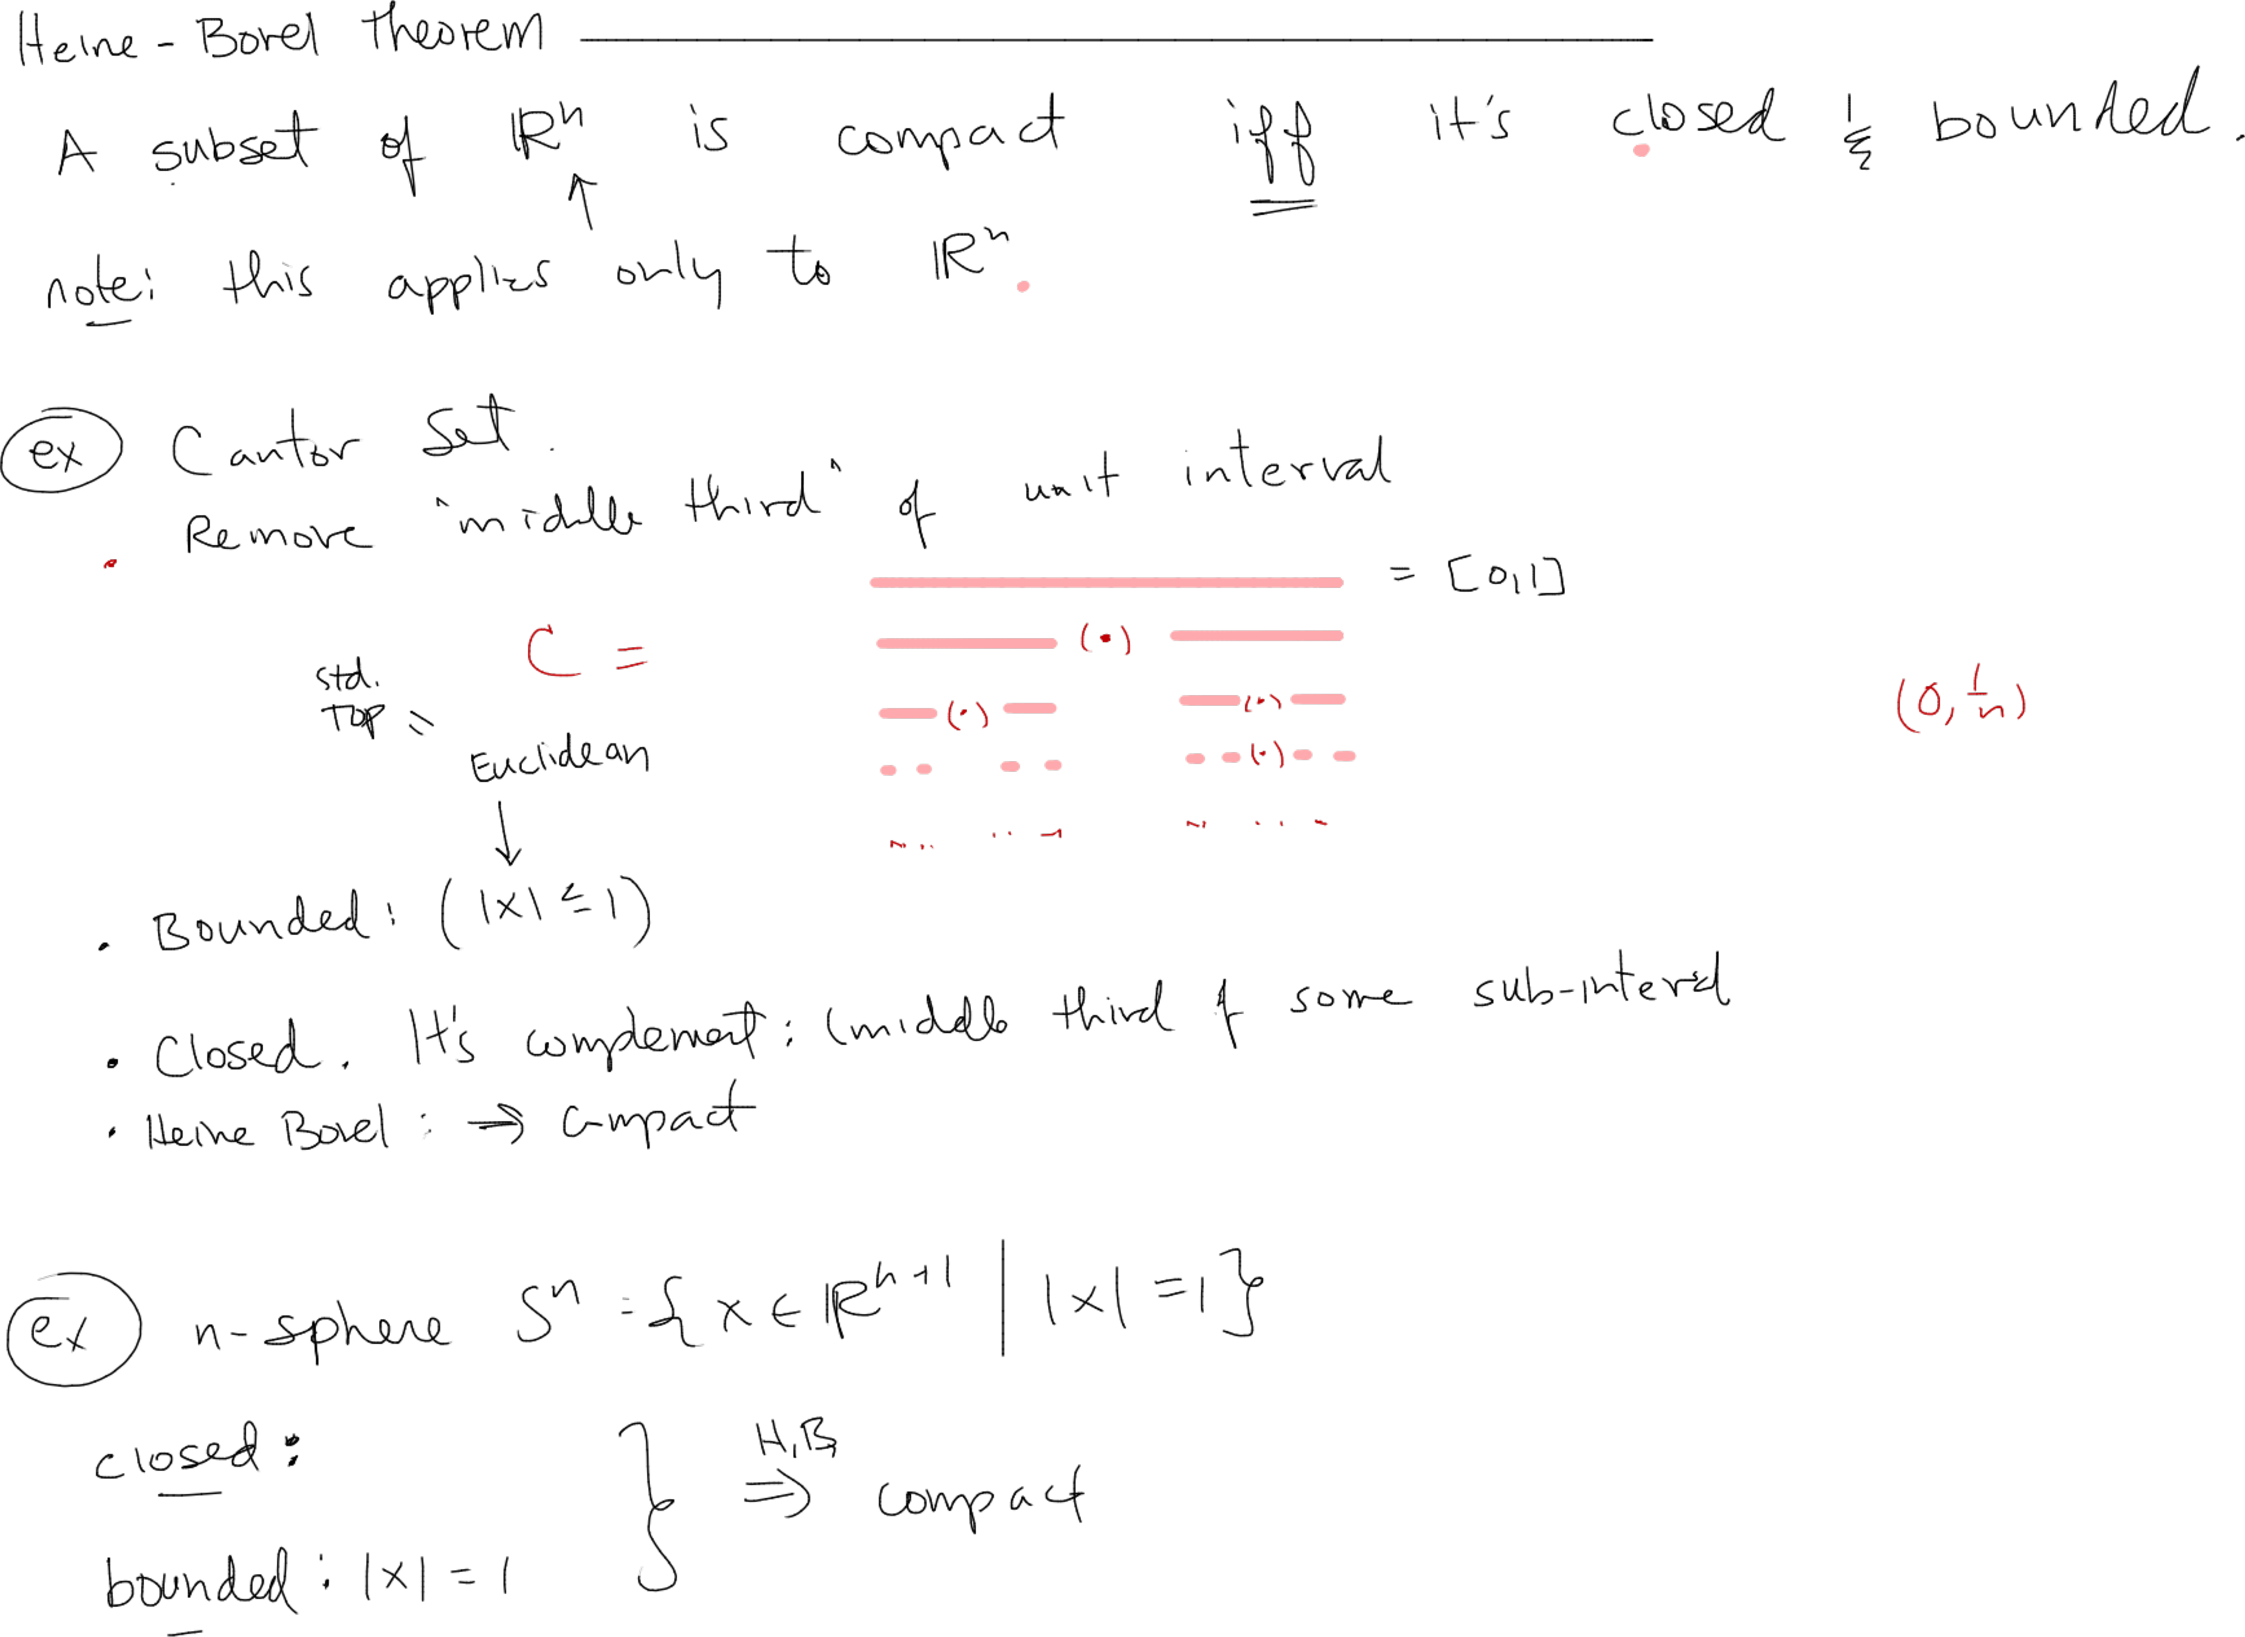 Heine-Borel theorem
A subset of ℝⁿ is compact iff it's closed & bounded.
note: this applies only to ℝⁿ.
ex Cantor Set.
Remove "middle third" of unit interval
= [0,1]
C =
(·)
std.
Top =
(·) (·)
(0, 1/n)
Euclidean
(·)
• Bounded: (|x| ≤ 1)
• Closed. It's complement: (middle third of some sub-interval
• Heine Borel: ⇒ compact
ex n-sphere Sⁿ = { x ∈ ℝⁿ⁺¹ | |x| = 1 }
closed:
H.B.
} ⇒ compact
bounded: |x| = 1